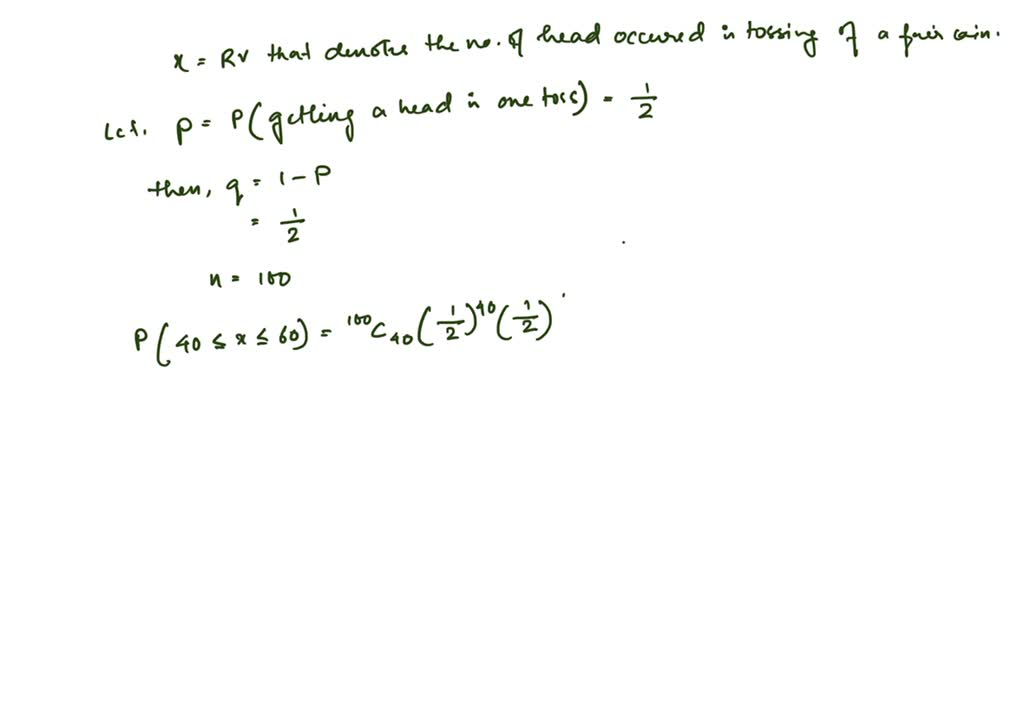 x = RV that denotes the no. of head occured in tossing of a fair coin.
Let. p = P(getting a head in one toss) = 1/2
then, q = 1 - P
= 1/2
n = 100
P(40 ≤ x ≤ 60) = ¹⁰⁰C₄₀ (1/2)⁴⁰ (1/2)